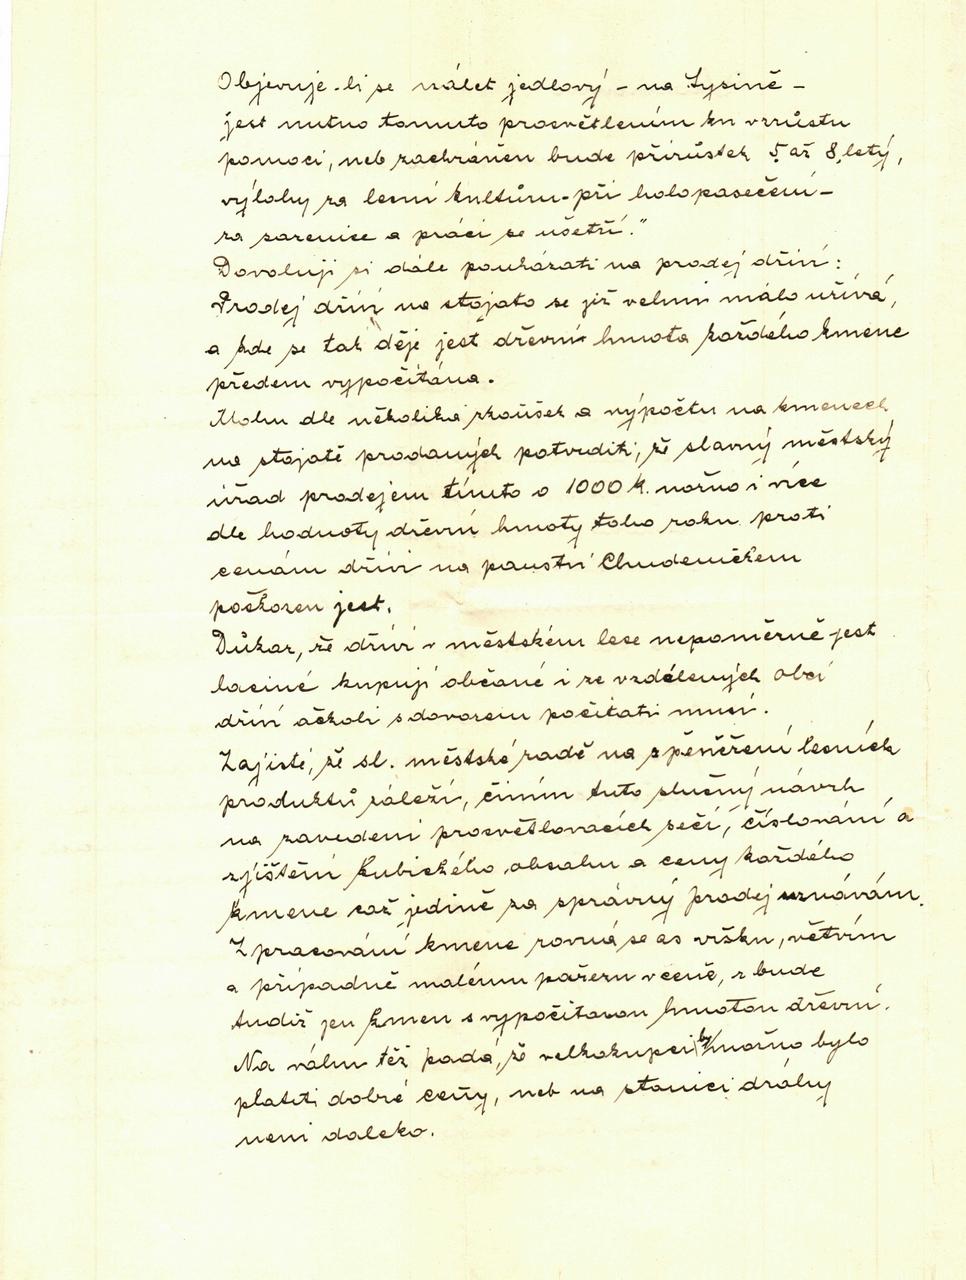 Objevuje-li se nálet jedlový – na Lysině –
jest nutno tomuto prosvětlením ku vzrůstu
pomoci, neb zachráněn bude přírůstek 5 až 8 letý,
výlohy za lesní kultůru – při holopasečení –
za sazenice a práci se ušetří."
Dovoluji si dále poukázati na prodej dříví:
Prodej dříví na stojato se již velmi málo užívá,
a kde se tak děje jest dřevní hmota každého kmene
předem vypočítána.
Mohu dle několika zkoušek a výpočtu na kmenech
na stojatě prodaných potvrditi, že slavný městský
úřad prodejem tímto o 1000 K. možno i více
dle hodnoty dřevní hmoty toho roku proti
cenám dříví na panství Chudenickém
poškozen jest.
Důkaz, že dříví v městském lese nepoměrně jest
laciné kupují občané i ze vzdělených obcí
dříví ačkoli s dovozem počítati musí.
Zajisté, že sl. městské radě na zpěněžení lesních
produktů záleží, činím tuto slušný návrh
na zavedení prosvětlovacích sečí, číslování a
zjištění kubického obsahu a ceny každého
kmene což jedině za správný prodej uznávám.
Zpracování kmene rovná se as vršku, větvím
a případně malému pařezu v ceně, z bude
tudíž jen kmen s vypočítanou hmotou dřevní.
Na váhu též padá, že velkokupci by možno bylo
platiti dobré ceny, neb na stanici dráhy
není daleko.